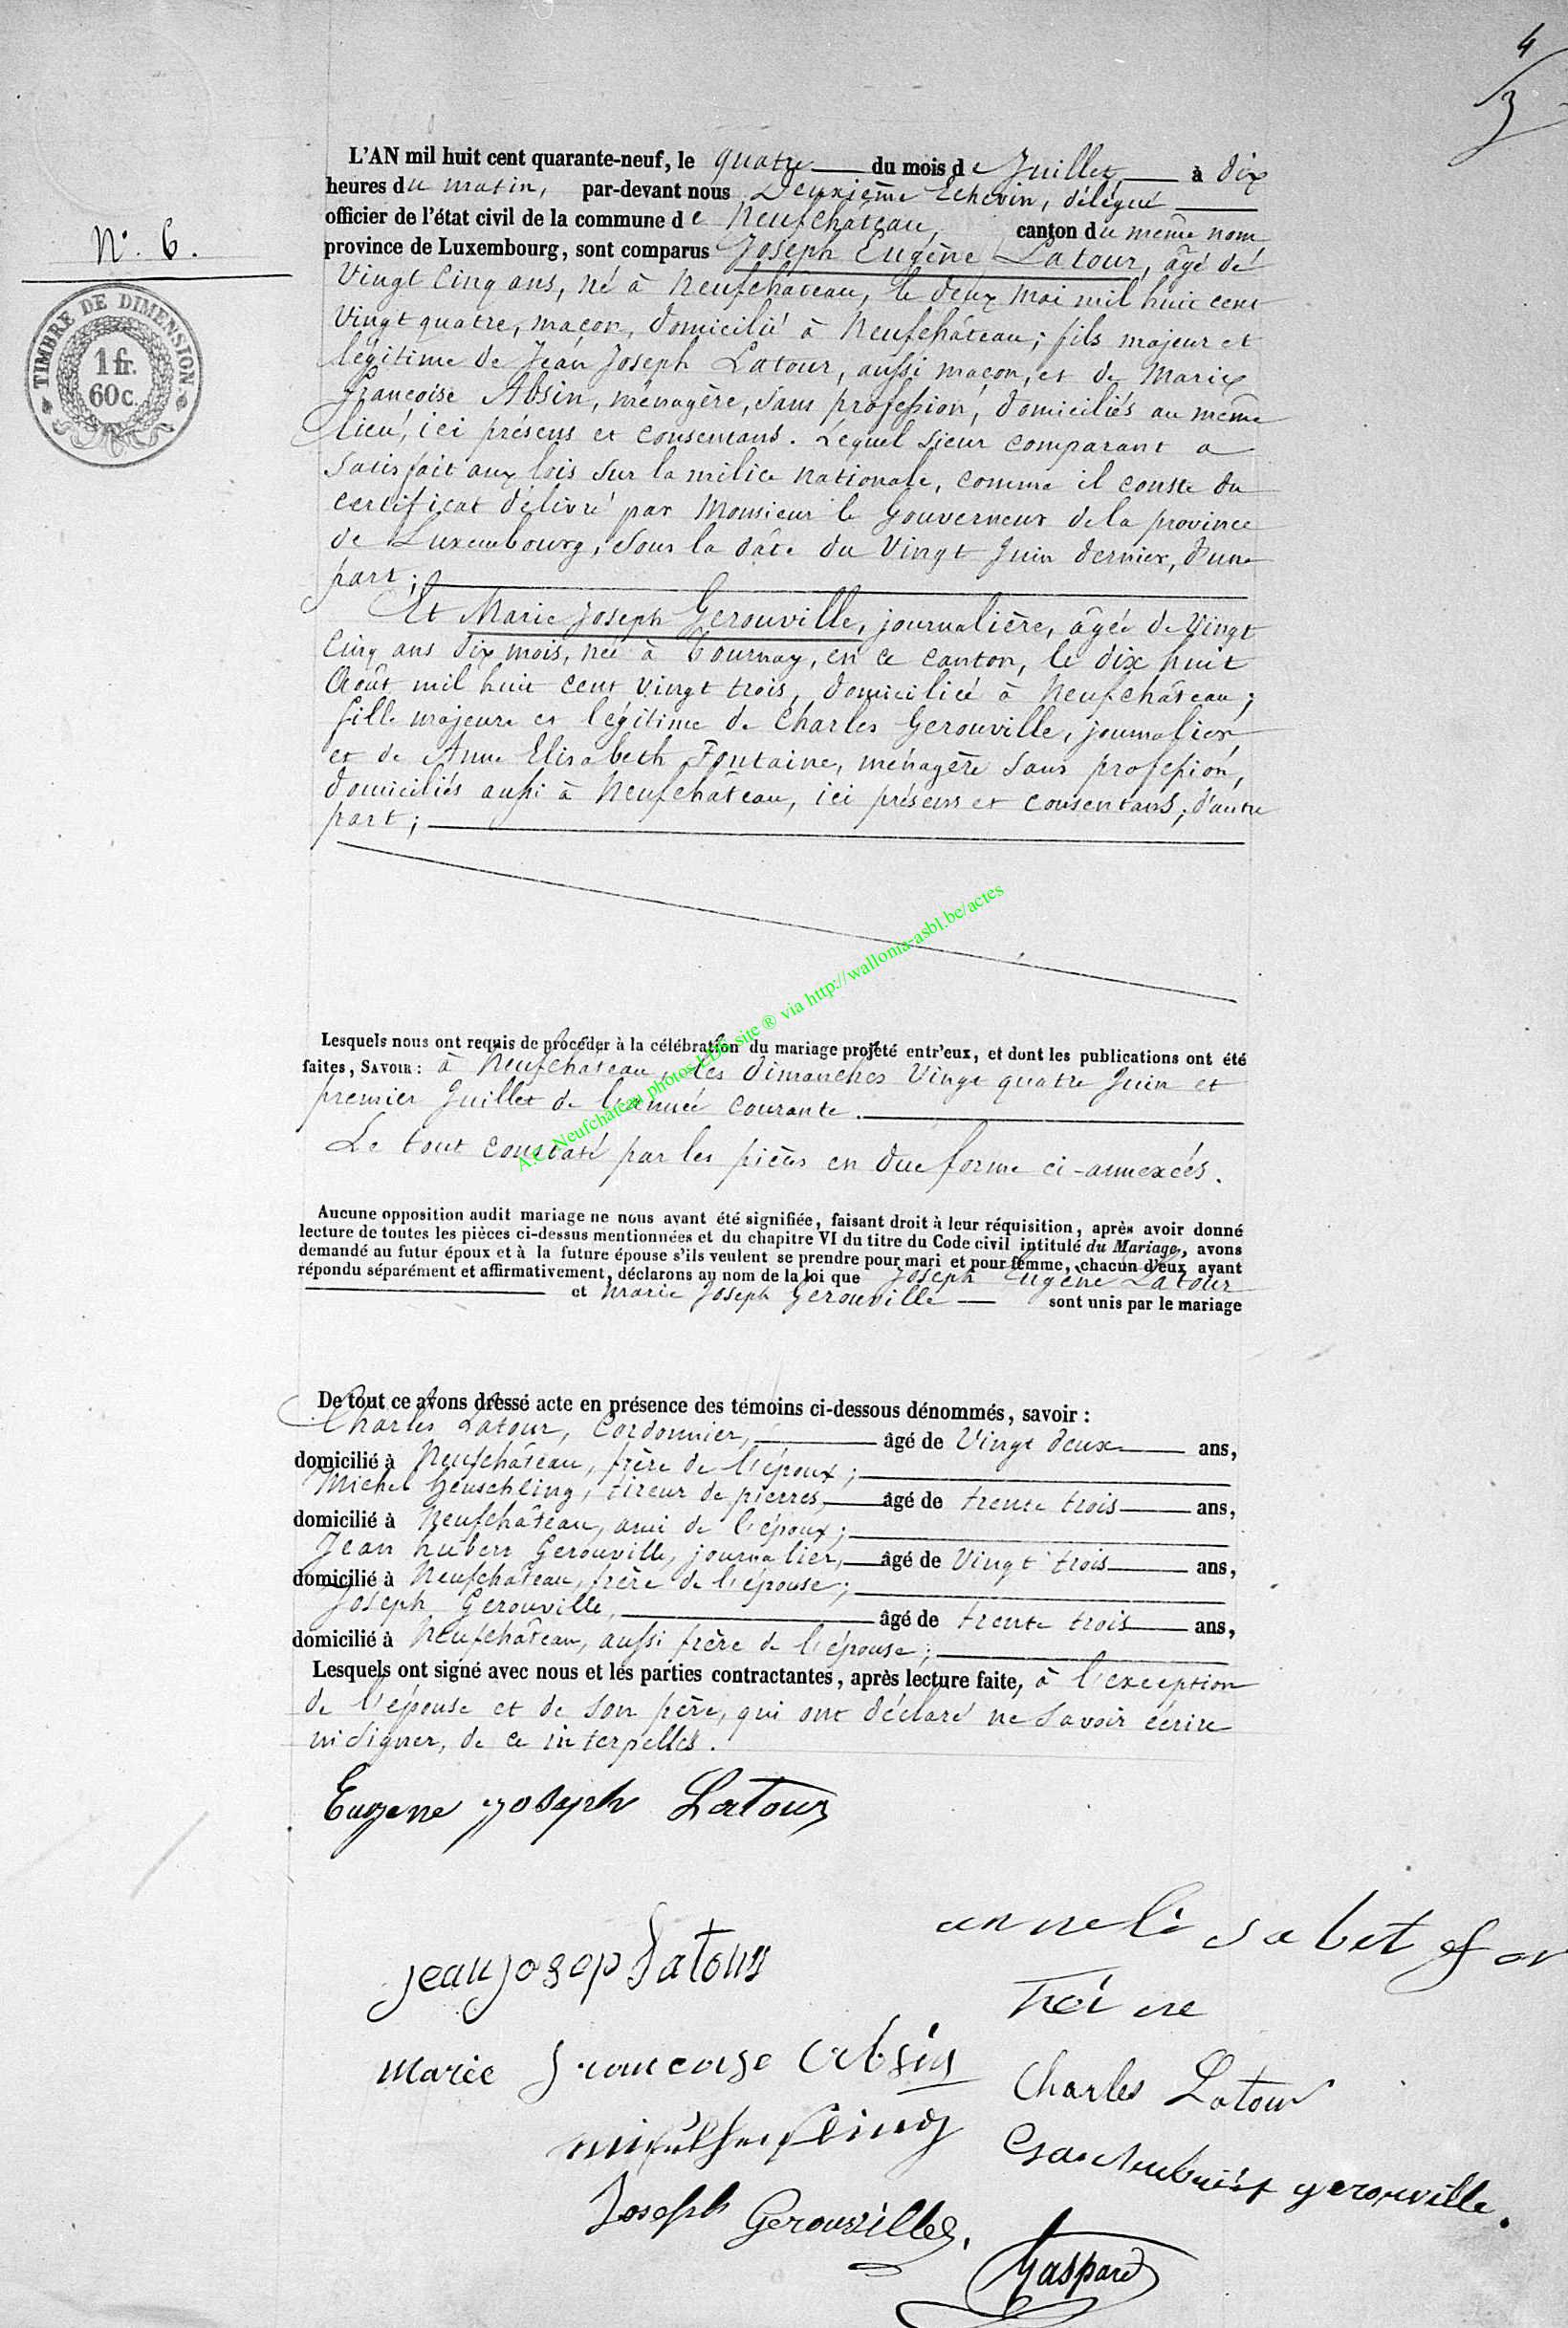 4
3
L'AN mil huit cent quarante-neuf, le quatre du mois de Juillet à dix
heures du matin, par-devant nous Deuxième Echevin, délégué
officier de l'état civil de la commune de Neufchâteau, canton du même nom
province de Luxembourg, sont comparus Joseph Eugène Latour, âgé de
N° 6.
TIMBRE DE DIMENSION.
1 fr.
60 c.
Vingt Cinq ans, né à Neufchâteau, le deux Mai mil huit cent
Vingt quatre, maçon, domicilié à Neufchâteau; fils majeur et
légitime de Jean Joseph Latour, aussi maçon, et de Marie
Françoise Absin, ménagère, sans profession, domiciliés au même
lieu, ici présens et consentans. Lequel sieur comparant a
satisfait aux lois sur la milice nationale, comme il conste du
certificat délivré par Monsieur le Gouverneur de la province
de Luxembourg, sous la date du Vingt Juin dernier, d'une
part;
Et Marie Joseph Gerouville, journalière, âgée de Vingt
Cinq ans dix mois, née à Tournay, en ce canton, le dix huit
Août mil huit cent vingt trois, domiciliée à Neufchâteau;
fille majeure et légitime de Charles Gerouville, journalier
et de Anne Elisabeth Fontaine, ménagère sans profession,
domiciliés aussi à Neufchâteau, ici présens et consentans, d'autre
part;
A.C. Neufchâteau photos LDS site ® via http://wallonia-asbl.be/actes
Lesquels nous ont requis de procéder à la célébration du mariage projeté entr'eux, et dont les publications ont été
faites, SAVOIR: à Neufchâteau, les dimanches Vingt quatre Juin et
premier Juillet de l'année courante.
Le tout constaté par les pièces en due forme ci-annexées.
Aucune opposition audit mariage ne nous ayant été signifiée, faisant droit à leur réquisition, après avoir donné
lecture de toutes les pièces ci-dessus mentionnées et du chapitre VI du titre du Code civil intitulé du Mariage, avons
demandé au futur époux et à la future épouse s'ils veulent se prendre pour mari et pour femme, chacun d'eux ayant
répondu séparément et affirmativement, déclarons au nom de la loi que Joseph Eugène Latour
et Marie Joseph Gerouville sont unis par le mariage
De tout ce avons dressé acte en présence des témoins ci-dessous dénommés, savoir :
Charles Latour, Cordonnier, âgé de Vingt deux ans,
domicilié à Neufchâteau, frère de l'époux;
Michel Heuschling, tireur de pierres, âgé de trente trois ans,
domicilié à Neufchâteau, ami de l'époux;
Jean hubert Gerouville, journalier, âgé de Vingt trois ans,
domicilié à Neufchâteau, frère de l'épouse;
Joseph Gerouville, âgé de trente trois ans,
domicilié à Neufchâteau, aussi frère de l'épouse;
Lesquels ont signé avec nous et les parties contractantes, après lecture faite, à l'exception
de l'épouse et de son père, qui ont déclaré ne savoir écrire
ni signer, de ce interpellés.
Eugene joseph Latour
anneli sabet fon
jeanjosep Latour
Marie francoise Absin
Charles Latour
Joseph Gerouville.
gerouville.
Gaspard